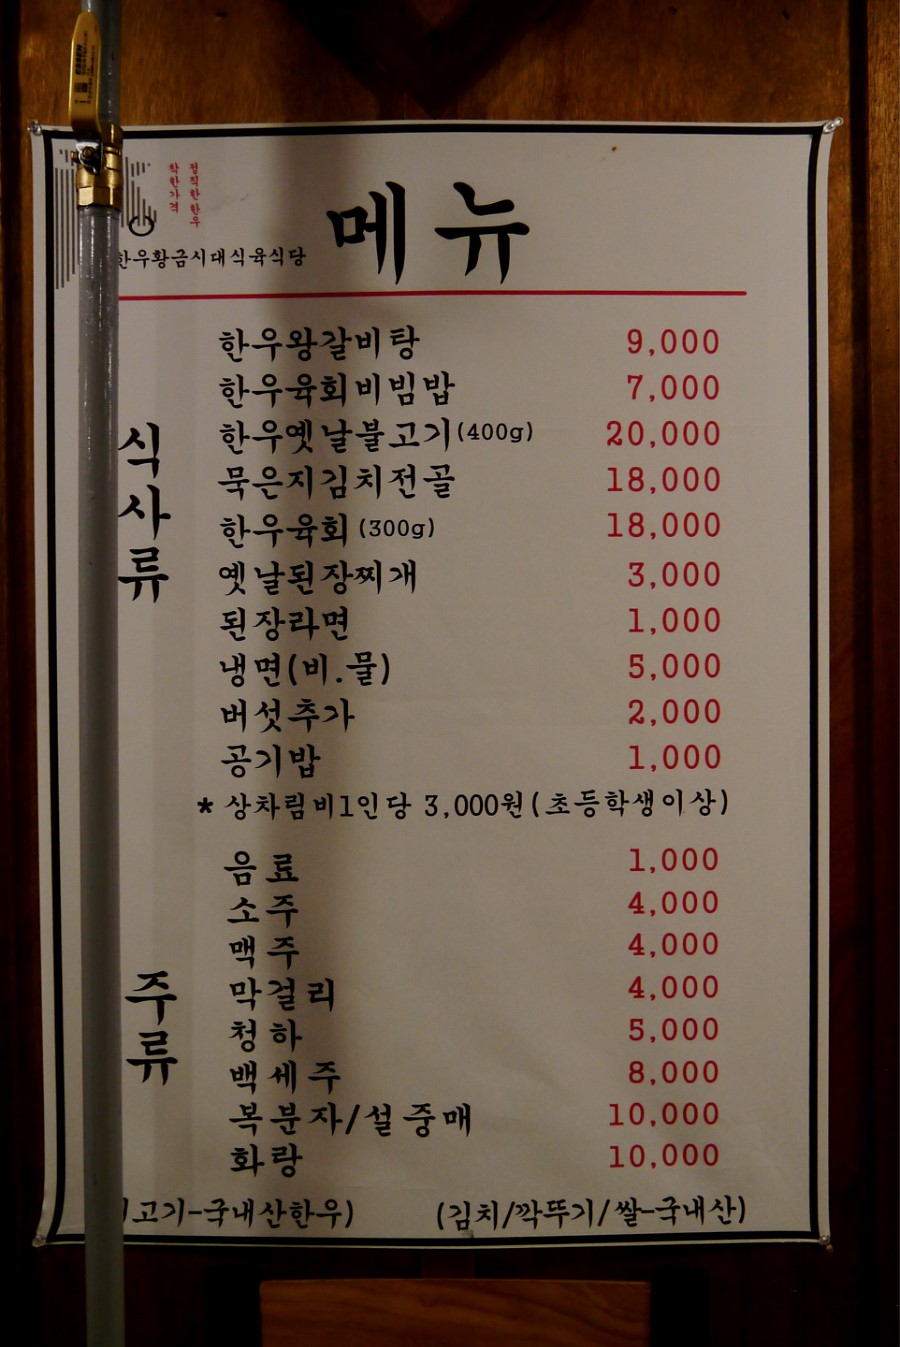 정직한한우
착한가격
한우황금시대식육식당
메뉴
식사류
한우왕갈비탕 9,000
한우육회비빔밥 7,000
한우옛날불고기(400g) 20,000
묵은지김치전골 18,000
한우육회(300g) 18,000
옛날된장찌개 3,000
된장라면 1,000
냉면(비.물) 5,000
버섯추가 2,000
공기밥 1,000
* 상차림비1인당 3,000원(초등학생이상)
주류
음료 1,000
소주 4,000
맥주 4,000
막걸리 4,000
청하 5,000
백세주 8,000
복분자/설중매 10,000
화랑 10,000
고기-국내산한우) (김치/깍뚜기/쌀-국내산)